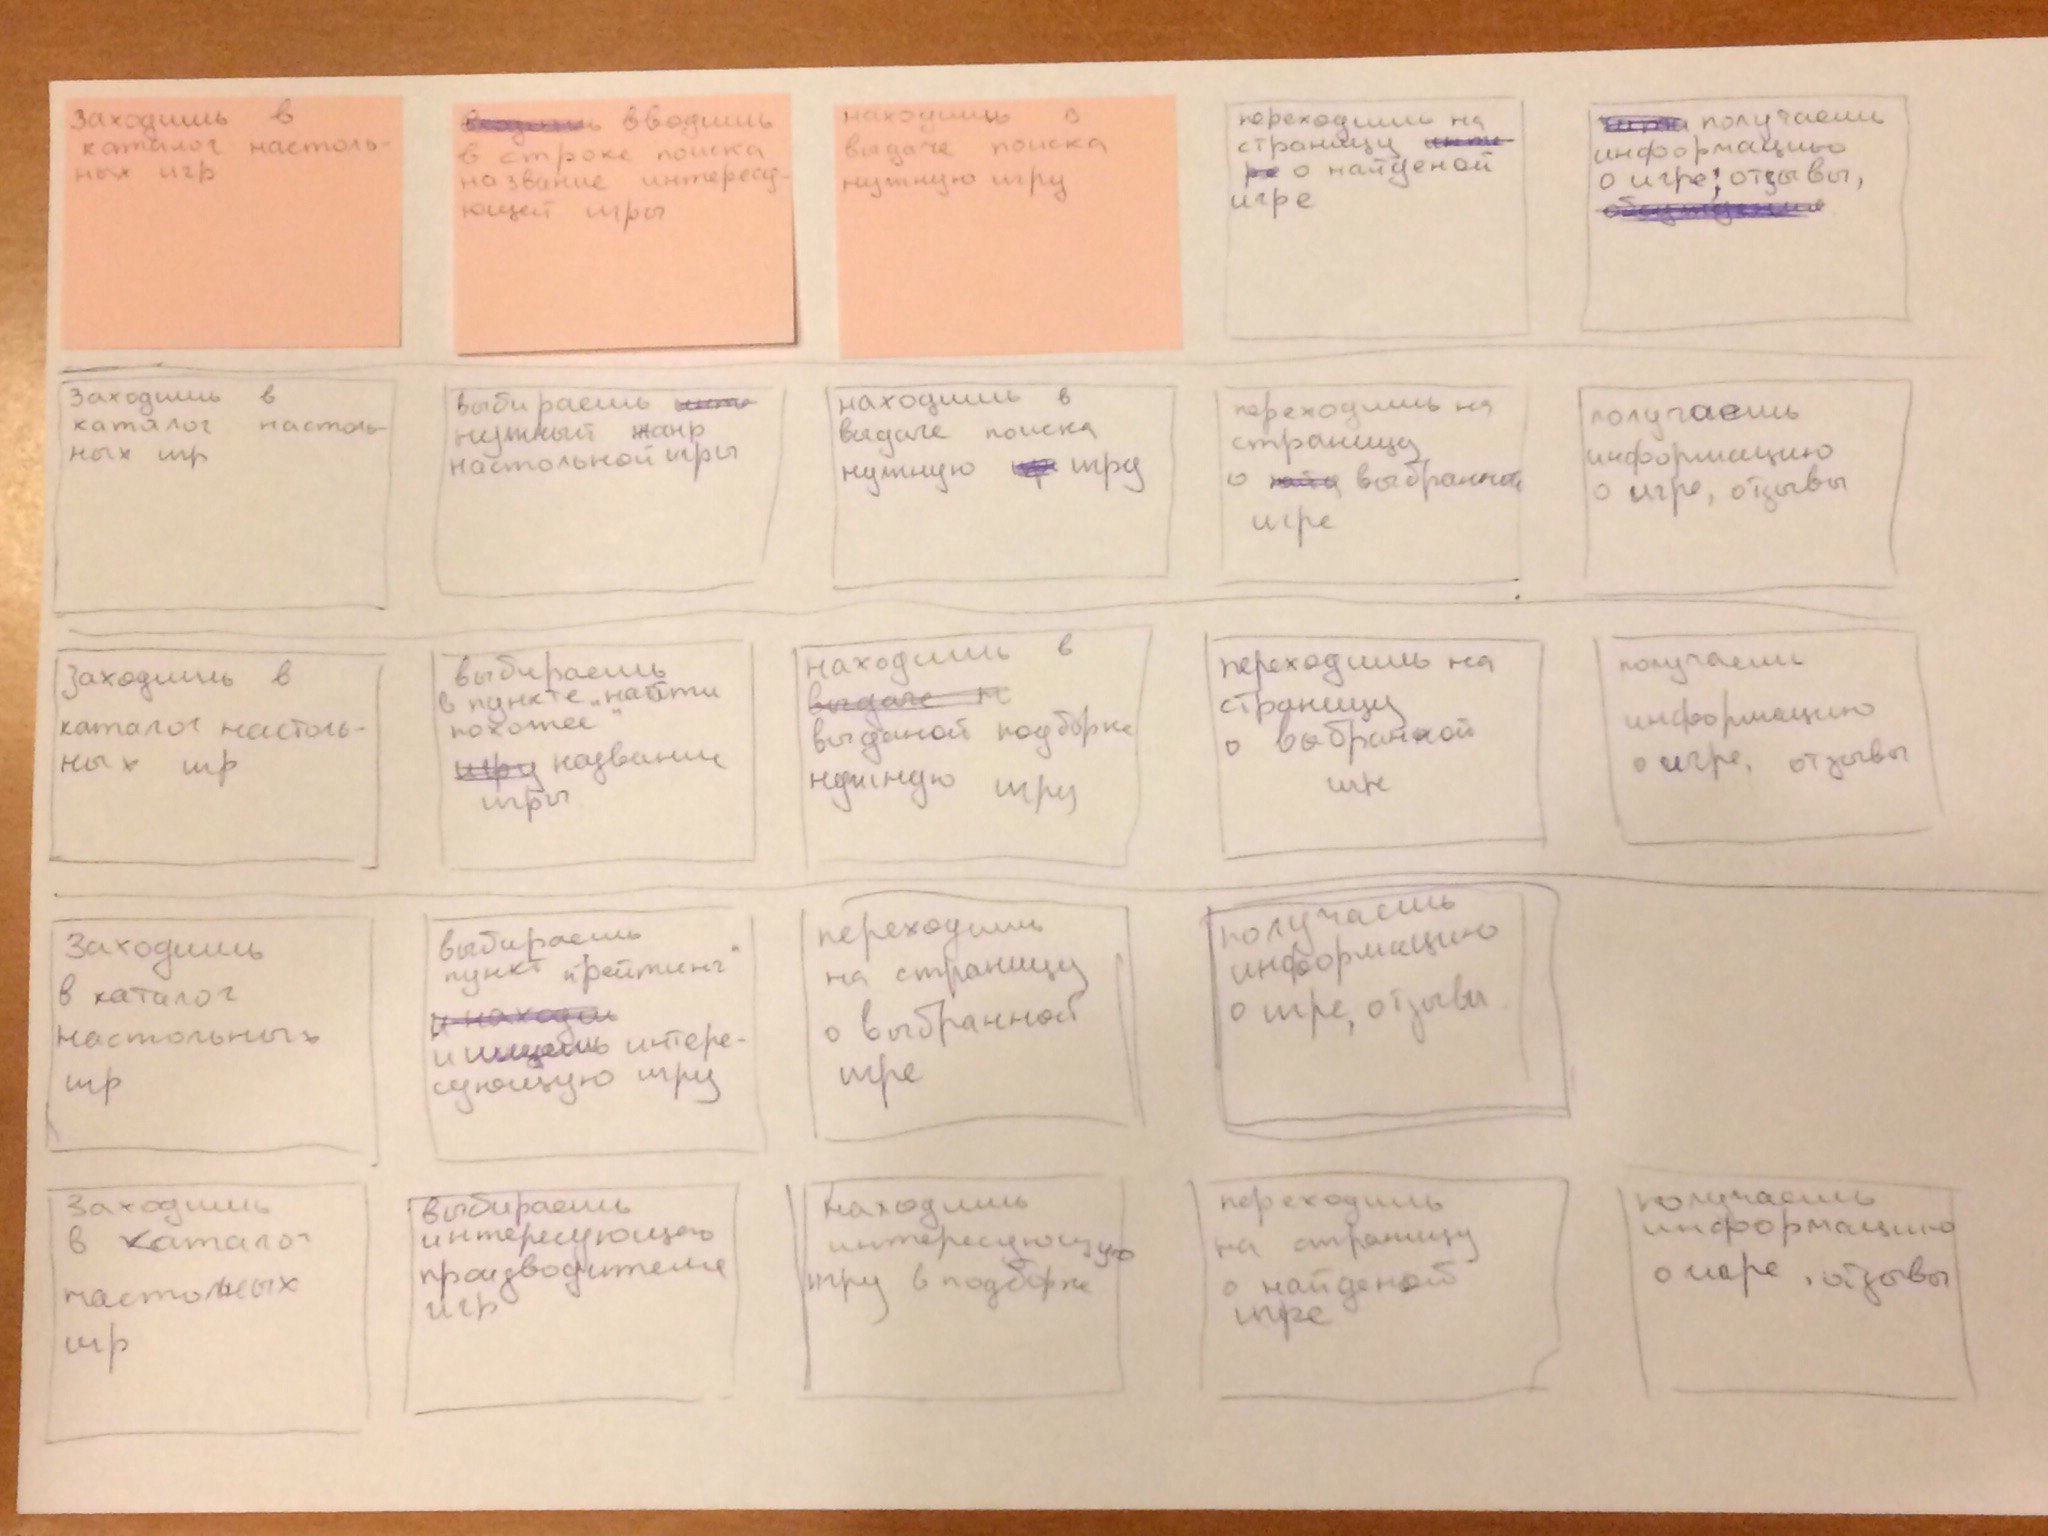 Заходишь в
каталог настоль-
ных игр
вводишь
в строке поиска
название интересу-
ющей игры
находишь в
выдаче поиска
нужную игру
переходишь на
страницу
о найденой
игре
получаешь
информацию
о игре, отзывы,
Заходишь в
каталог настоль-
ных игр
выбираешь
нужный жанр
настольной игры
находишь в
выдаче поиска
нужную игру
переходишь на
страницу
о выбранной
игре
получаешь
информацию
о игре, отзывы
Заходишь в
каталог настоль-
ных игр
выбираешь
в пункте „найти
похожее"
название
игры
находишь в
выданой подборке
нужную игру
переходишь на
страницу
о выбранной
получаешь
информацию
о игре, отзывы
Заходишь
в каталог
настольных
игр
выбираешь
пункт "рейтинг"
и ищешь интере-
сующую игру
переходишь
на страницу
о выбранной
игре
получаешь
информацию
о игре, отзывы
Заходишь
в каталог
настольных
игр
выбираешь
интересующего
производителя
игр
находишь
интересующую
игру в подборке
переходишь
на страницу
о найденой
игре
получаешь
информацию
о игре, отзывы